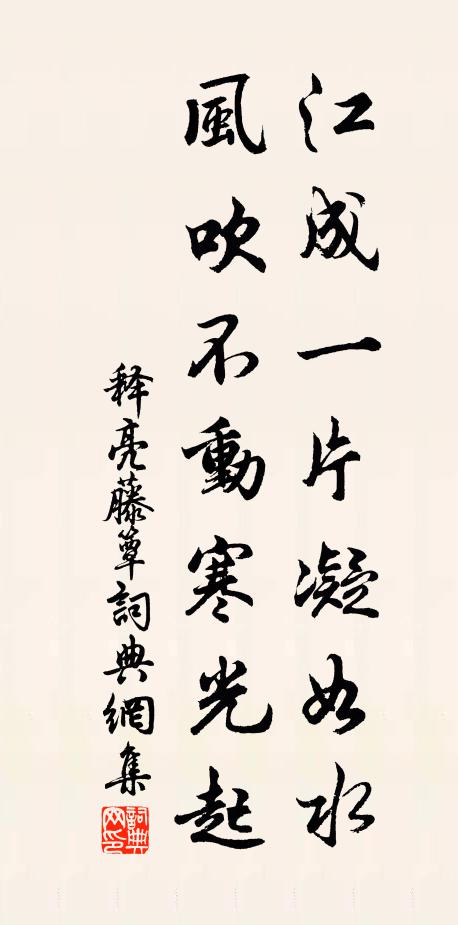 江成一片凝如水
風吹不動寒光起
释亮藤簟詞典網集
詞典網印